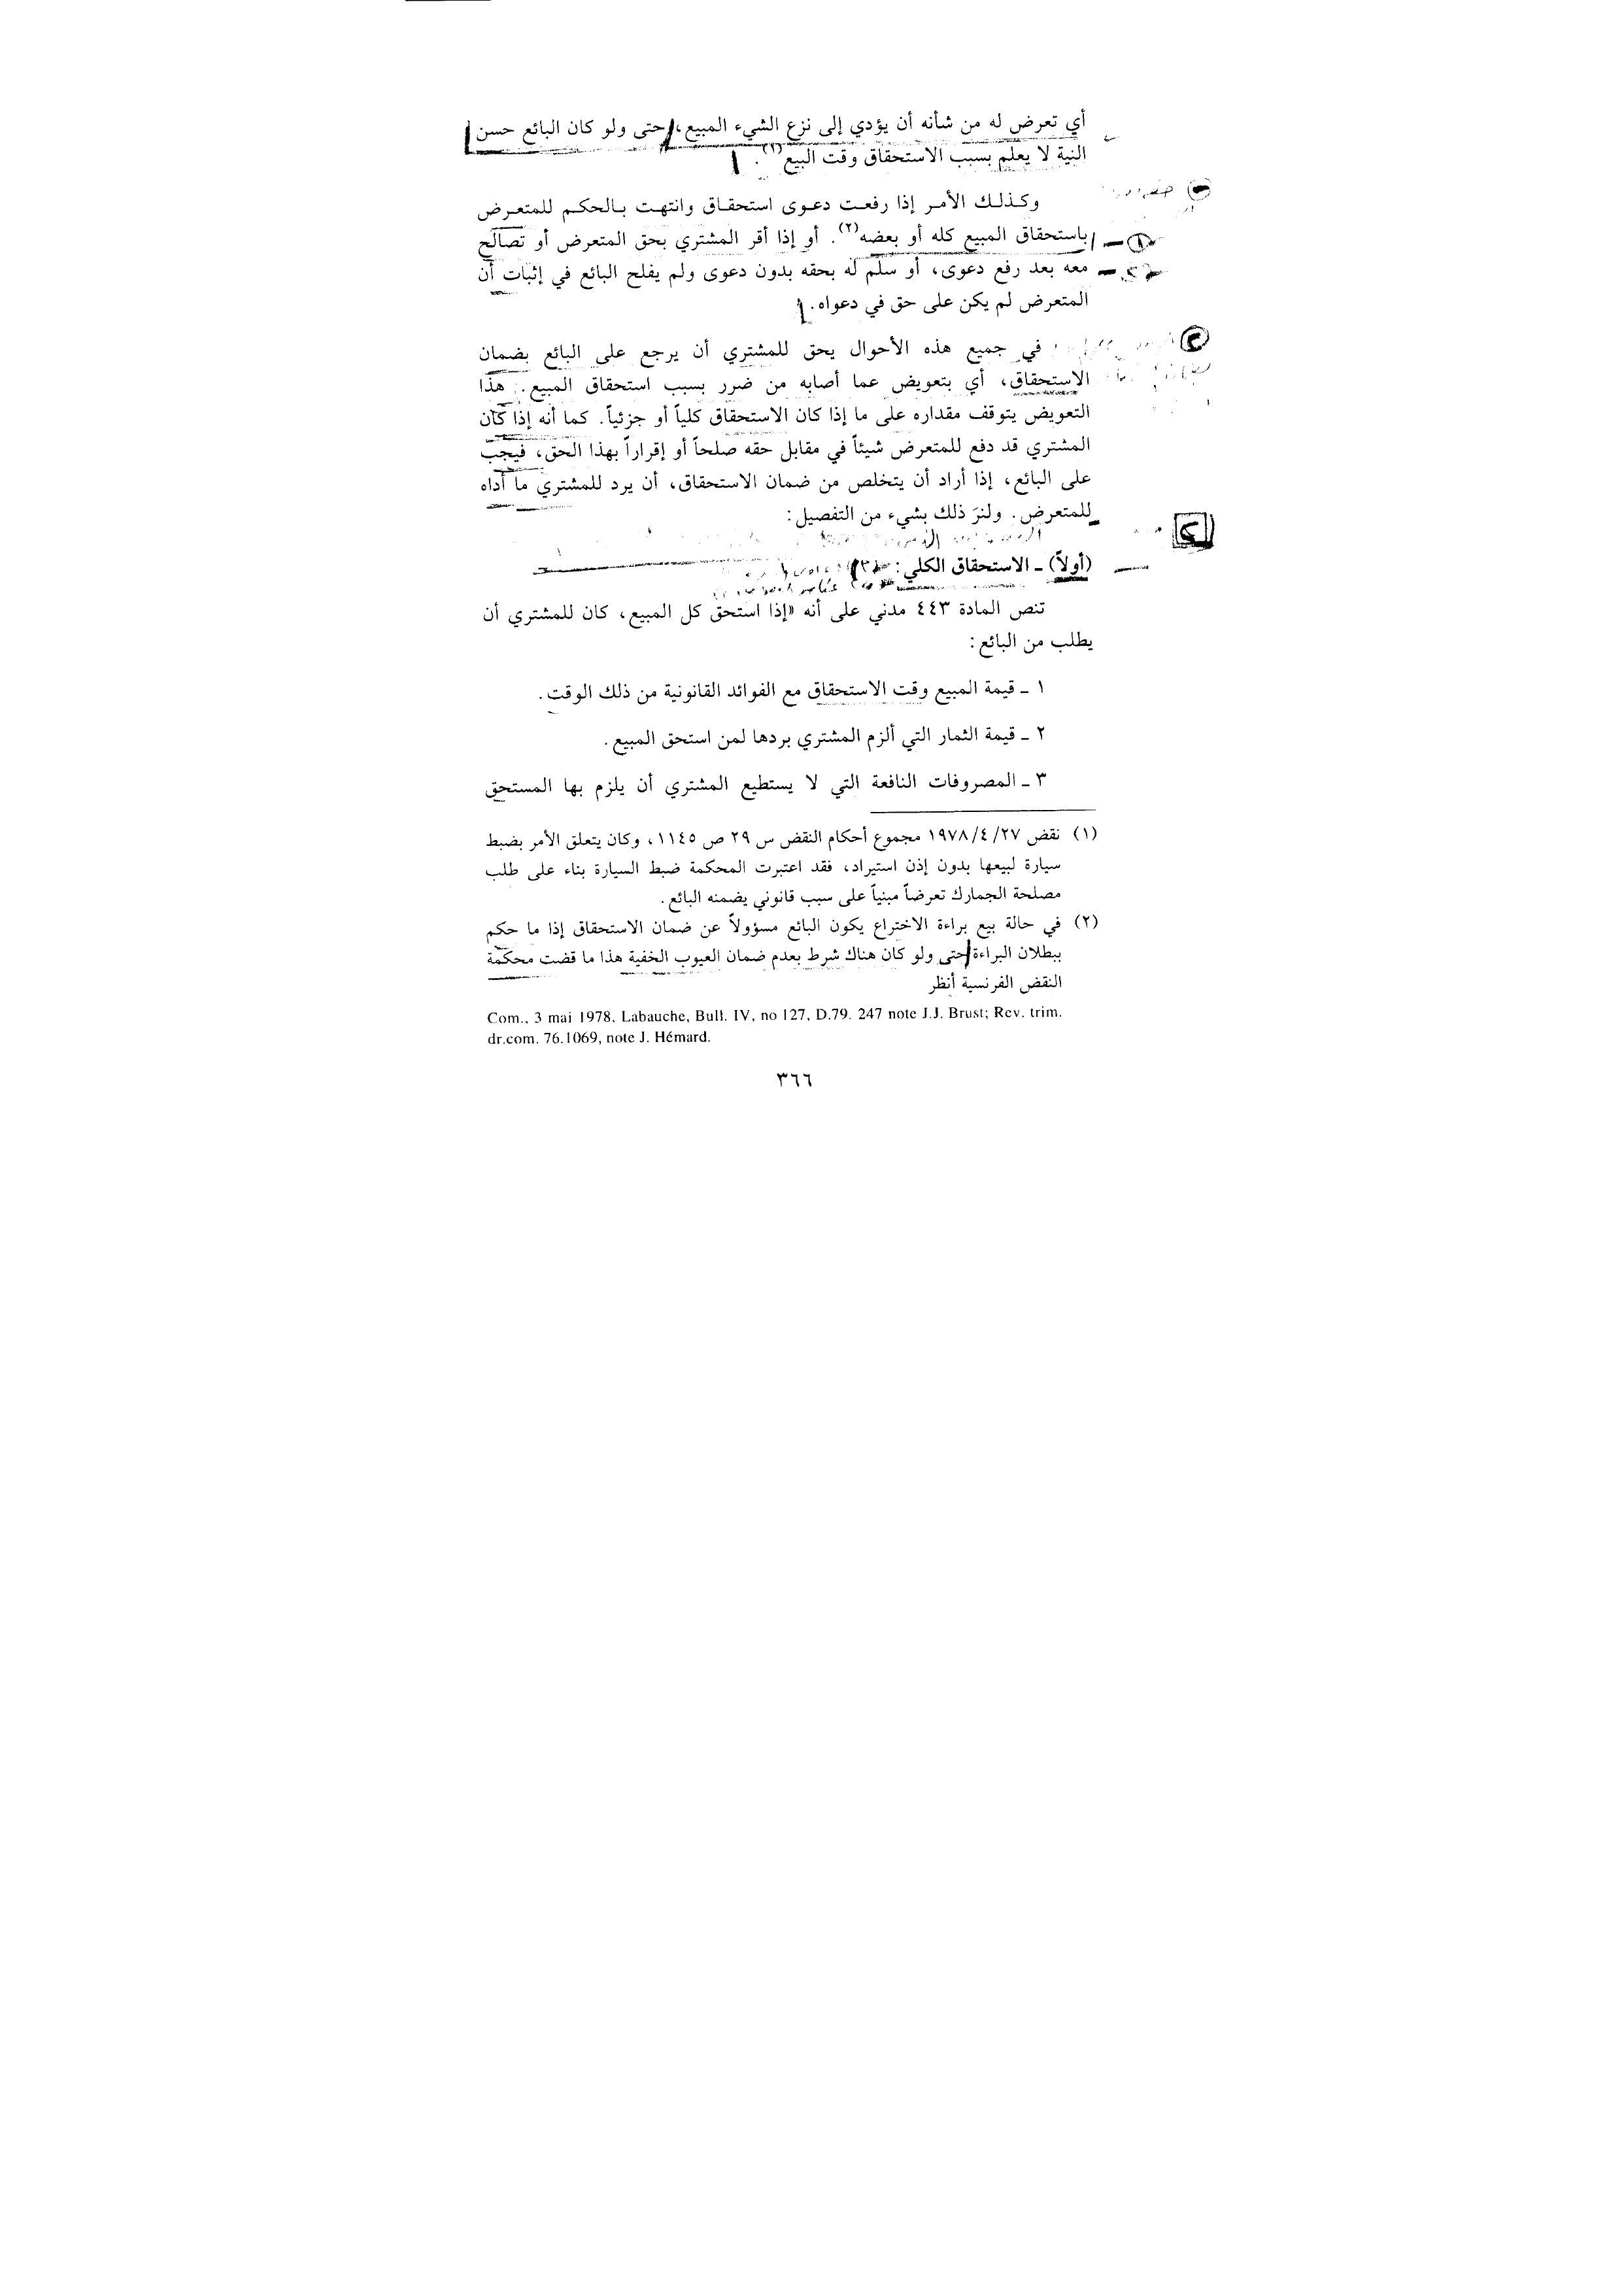 أي تعرض له من شأنه أن يؤدي إلى نزع الشيء المبيع، حتى ولو كان البائع حسن
النية لا يعلم بسبب الاستحقاق وقت البيع(١).
وكذلك الأمر إذا رفعت دعوى استحقاق وانتهت بالحكم للمتعرض
باستحقاق المبيع كله أو بعضه(٢). أو إذا أقر المشتري بحق المتعرض أو تصالح
معه بعد رفع دعوى، أو سلّم له بحقه بدون دعوى ولم يفلح البائع في إثبات أن
المتعرض لم يكن على حق في دعواه.
في جميع هذه الأحوال يحق للمشتري أن يرجع على البائع بضمان
الاستحقاق، أي بتعويض عما أصابه من ضرر بسبب استحقاق المبيع. هذا
التعويض يتوقف مقداره على ما إذا كان الاستحقاق كلياً أو جزئياً. كما أنه إذا كان
المشتري قد دفع للمتعرض شيئاً في مقابل حقه صلحاً أو إقراراً بهذا الحق، فيجب
على البائع، إذا أراد أن يتخلص من ضمان الاستحقاق، أن يرد للمشتري ما أداه
للمتعرض. ولنرَ ذلك بشيء من التفصيل:
(أولاً) ـ الاستحقاق الكلي:
تنص المادة ٤٤٣ مدني على أنه «إذا استحق كل المبيع، كان للمشتري أن
يطلب من البائع:
١ ـ قيمة المبيع وقت الاستحقاق مع الفوائد القانونية من ذلك الوقت.
٢ ـ قيمة الثمار التي ألزم المشتري بردها لمن استحق المبيع.
٣ ـ المصروفات النافعة التي لا يستطيع المشتري أن يلزم بها المستحق
(١) نقض ٢٧/٤/١٩٧٨ مجموع أحكام النقض س ٢٩ ص ١١٤٥، وكان يتعلق الأمر بضبط
سيارة لبيعها بدون إذن استيراد، فقد اعتبرت المحكمة ضبط السيارة بناء على طلب
مصلحة الجمارك تعرضاً مبنياً على سبب قانوني يضمنه البائع.
(٢) في حالة بيع براءة الاختراع يكون البائع مسؤولاً عن ضمان الاستحقاق إذا ما حكم
ببطلان البراءة حتى ولو كان هناك شرط بعدم ضمان العيوب الخفية هذا ما قضت محكمة
النقض الفرنسية أنظر
Com., 3 mai 1978, Labauche, Bull. IV, no 127, D.79. 247 note J.J. Brust; Rev. trim.
dr.com. 76.1069, note J. Hémard.
٣٦٦